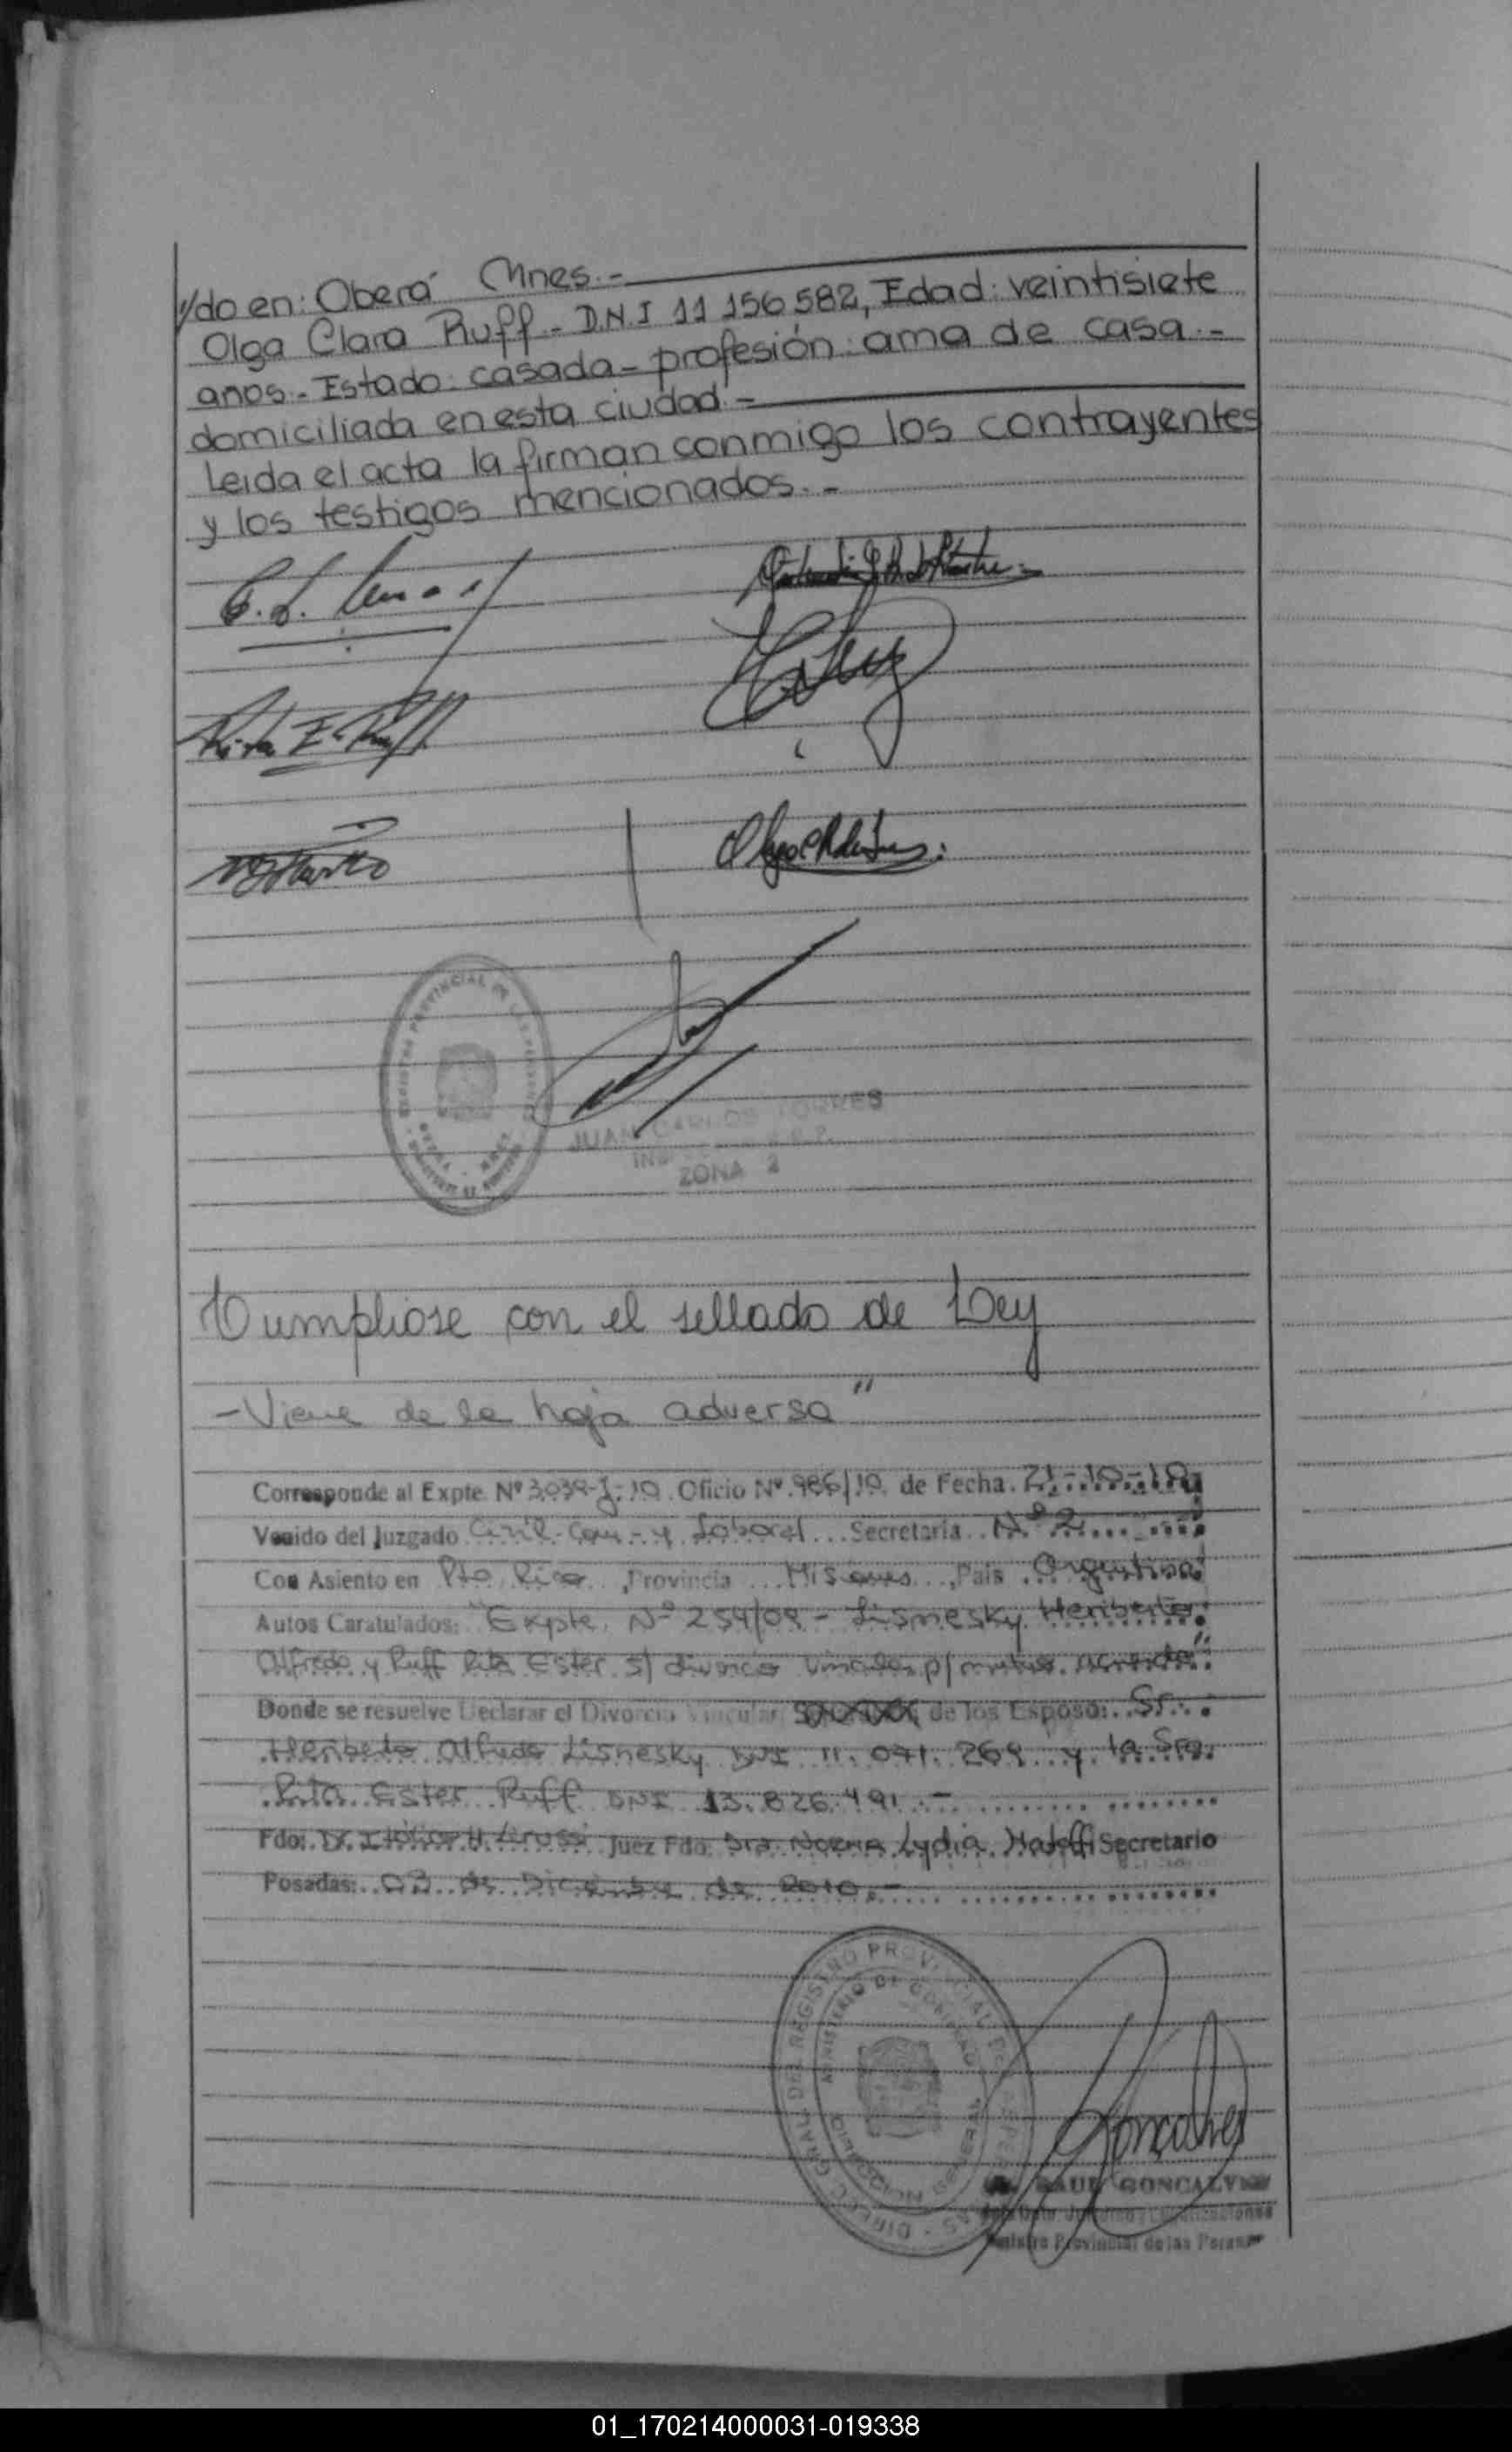 //do en: Oberá Mnes.-
Olga Clara Ruff.- D.N.I 11 156 582, Edad: veintisiete
anos.- Estado: casada - profesión: ama de casa.-
domiciliada en esta ciudad.-
Leida el acta la firman conmigo los contrayentes
y los testigos mencionados.-
Rita E. Ruff
JUAN CARLOS TORRES
ZONA 2
Cumpliose con el sellado de Ley
-Viene de la hoja adversa"
Corresponde al Expte. Nº 3039-J-10. Oficio Nº 986/10. de Fecha. 21-10-10
Venido del Juzgado Civil. Com.- y Laboral... Secretaria.. Nº 2
Con Asiento en Pto Rico, Provincia ... Misiones..., Pais. Argentina
Autos Caratulados: "Expte. Nº 254/09 - Lisnesky Heriberto
Alfredo y Ruff Rita Ester s/ divorcio vincular p/ mutuo acuerdo".
Donde se resuelve Declarar el Divorcio Vincular de los Esposo: Sr.
Heriberto Alfredo Lisnesky DNI 11. 071. 269 y la Sra.
Rita Ester Ruff DNI 13. 826. 491.-
Fdo: Dr. H. Juez Fdo: Dra. Norma Lydia Secretario
Posadas: 03 de Diciembre de 2010.-
DIRECC. GRAL. DEL REGISTRO PROVINCIAL DE LAS PERSONAS
MINISTERIO DE GOBIERNO
Goncalves
RAUL GONCALVES
Registro Provincial de las Personas
01_170214000031-019338